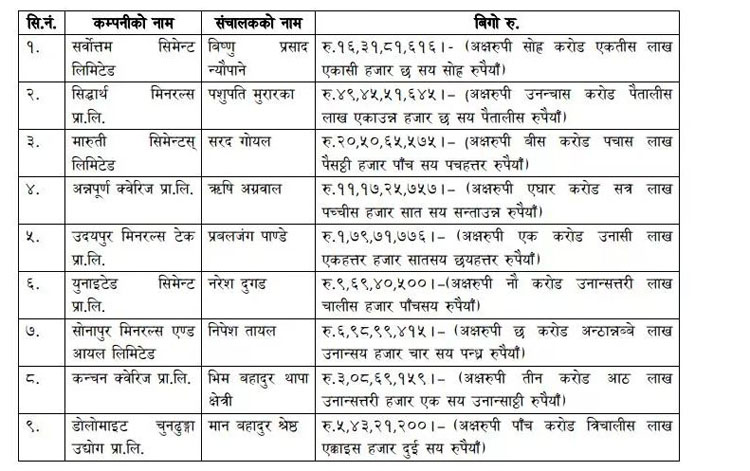 सि.नं. कम्पनीको नाम संचालकको नाम बिगो रु.
१. सर्वोत्तम सिमेन्ट विष्णु प्रसाद रु.१६,३१,८१,६१६।- (अक्षरुपी सोह्र करोड एकतीस लाख
लिमिटेड न्यौपाने एकासी हजार छ सय सोह्र रुपैयाँ)
२. सिद्धार्थ मिनरल्स पशुपति मुरारका रु.४९,४५,५१,६४५।– (अक्षरुपी उनन्चास करोड पैतालीस
प्रा.लि. लाख एकाउन्न हजार छ सय पैतालीस रुपैयाँ)
३. मारुती सिमेन्टस् सरद गोयल रु.२०,५०,६५,५७५।– (अक्षरुपी बीस करोड पचास लाख
लिमिटेड पैसठ्ठी हजार पाँच सय पचहत्तर रुपैयाँ)
४. अन्नपूर्ण क्वेरिज प्रा.लि. ऋषि अग्रवाल रु.११,१७,२५,७५७।– (अक्षरुपी एघार करोड सत्र लाख
पच्चीस हजार सात सय सन्ताउन्न रुपैयाँ)
५. उदयपुर मिनरल्स टेक प्रबलजंग पाण्डे रु.१,७९,७१,७७६।– (अक्षरुपी एक करोड उनासी लाख
प्रा.लि. एकहत्तर हजार सातसय छयहत्तर रुपैयाँ)
६. युनाइटेड सिमेन्ट नरेश दुगड रु.९,६९,४०,५००।–(अक्षरुपी नौ करोड उनान्सत्तरी लाख
प्रा.लि. चालीस हजार पाँचसय रुपैयाँ)
७. सोनापुर मिनरल्स एण्ड निपेश तायल रु.६,९८,९९,४१५।– (अक्षरुपी छ करोड अन्ठान्नब्बे लाख
आयल लिमिटेड उनान्सय हजार चार सय पन्ध्र रुपैयाँ)
८. कन्चन क्वेरिज प्रा.लि. भिम बहादुर थापा रु.३,०८,६९,१५९।– (अक्षरुपी तीन करोड आठ लाख
क्षेत्री उनान्सत्तरी हजार एक सय उनान्साठ्ठी रुपैयाँ)
९. डोलोमाइट चुनढुङ्गा मान बहादुर श्रेष्ठ रु.५,४३,२१,२००।– (अक्षरुपी पाँच करोड त्रिचालीस लाख
उद्योग प्रा.लि. एक्काइस हजार दुई सय रुपैयाँ)